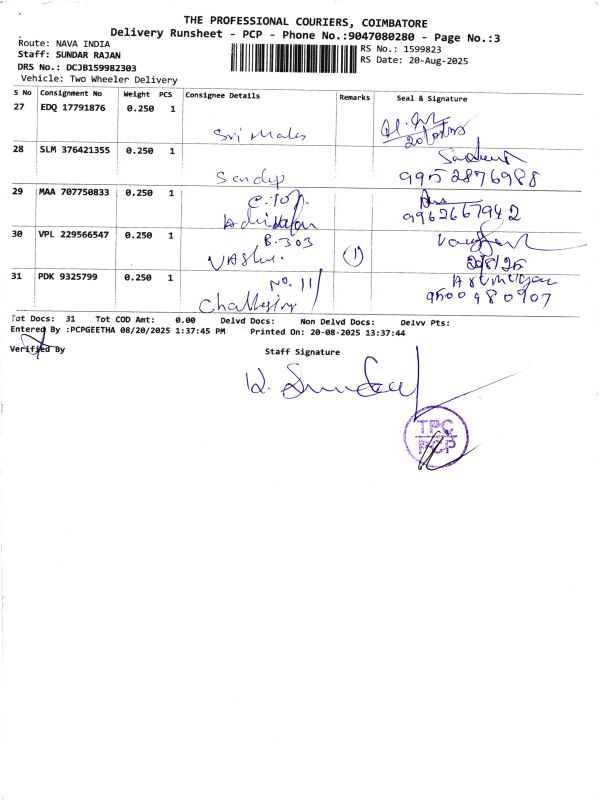 THE PROFESSIONAL COURIERS, COIMBATORE
Delivery Runsheet - PCP - Phone No.:9047080280 - Page No.:3
Route: NAVA INDIA
RS No.: 1599823
Staff: SUNDAR RAJAN
RS Date: 20-Aug-2025
DRS No.: DCJB159982303
Vehicle: Two Wheeler Delivery
S No Consignment No Weight PCS Consignee Details Remarks Seal & Signature
27 EDQ 17791876 0.250 1
Sri Mala
28 SLM 376421355 0.250 1
Sandip 9952876988
29 MAA 707750833 0.250 1
9962667942
30 VPL 229566547 0.250 1 B.303
1
20/8/25
31 PDK 9325799 0.250 1 No. 11
9500980907
Tot Docs: 31 Tot COD Amt: 0.00 Delvd Docs: Non Delvd Docs: Delvv Pts:
Entered By :PCPGEETHA 08/20/2025 1:37:45 PM Printed On: 20-08-2025 13:37:44
Verified By Staff Signature
TPC
PCP